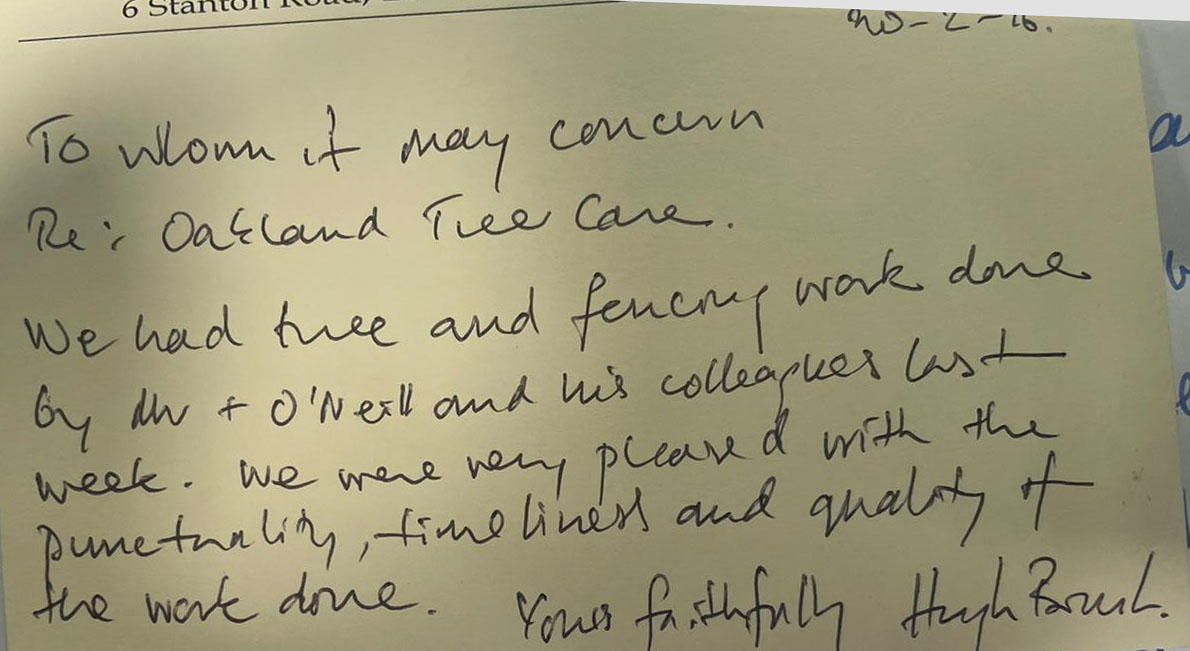 6 Stanton Road,
20-2-16.
To whom it may concern
Re: Oakland Tree Care.
We had tree and fencing work done
by Mr + O'Neill and his colleagues last
week. We were very pleased with the
punctuality, timeliness and quality of
the work done. Yours faithfully Hugh